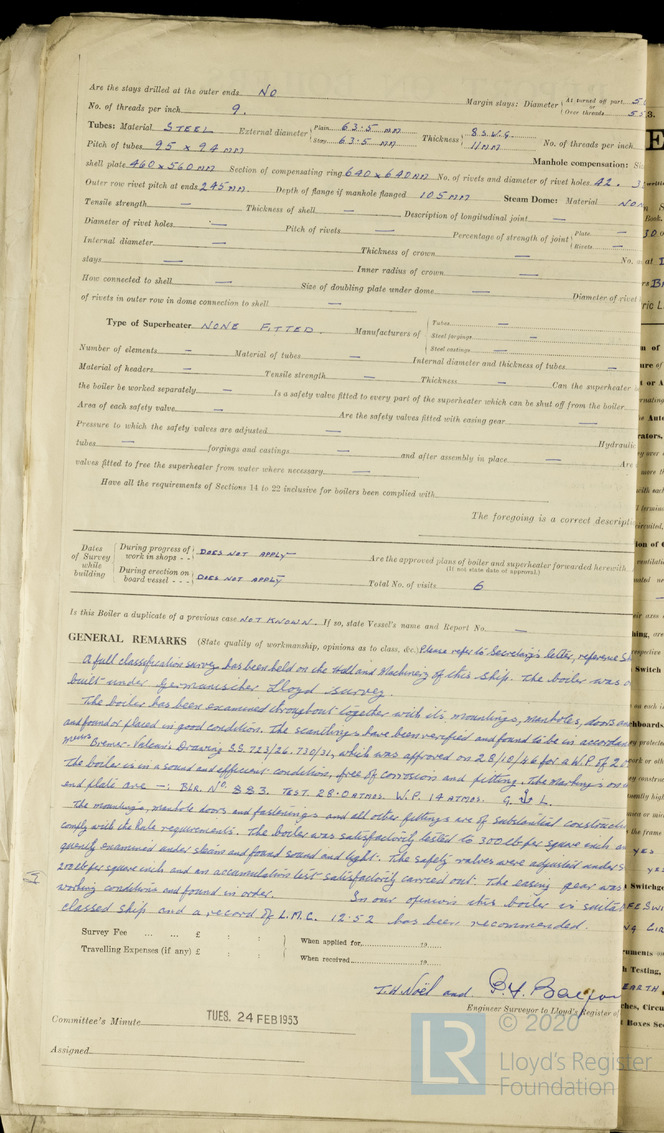 Are the stays drilled at the outer ends No Margin stays: Diameter { At turned off part or Over threads
No. of threads per inch 9.
Tubes: Material STEEL External diameter { Plain 63·5 MM Stay 63·5 MM Thickness { 8 S.W.G. 11 MM No. of threads per inch
Pitch of tubes 95 x 94 MM Manhole compensation:
shell plate 460 x 560 MM Section of compensating ring 640 x 640 MM No. of rivets and diameter of rivet holes 42.
Outer row rivet pitch at ends 245 MM. Depth of flange if manhole flanged 105 MM Steam Dome: Material NON
Tensile strength — Thickness of shell — Description of longitudinal joint —
Diameter of rivet holes — Pitch of rivets — Percentage of strength of joint { Plate — Rivets —
Internal diameter — Thickness of crown — No.
stays — Inner radius of crown —
How connected to shell — Size of doubling plate under dome — Diameter of rivet
of rivets in outer row in dome connection to shell —
Type of Superheater NONE FITTED. Manufacturers of { Tubes — Steel forgings — Steel castings —
Number of elements — Material of tubes — Internal diameter and thickness of tubes —
Material of headers — Tensile strength — Thickness — Can the superheater
the boiler be worked separately — Is a safety valve fitted to every part of the superheater which can be shut off from the boiler
Area of each safety valve — Are the safety valves fitted with easing gear —
Pressure to which the safety valves are adjusted — Hydraulic
tubes — forgings and castings — and after assembly in place — Are
valves fitted to free the superheater from water where necessary —
Have all the requirements of Sections 14 to 22 inclusive for boilers been complied with
The foregoing is a correct descripti
Dates of Survey while building { During progress of work in shops - - DOES NOT APPLY Are the approved plans of boiler and superheater forwarded herewith
(If not state date of approval.)
During erection on board vessel - - - DOES NOT APPLY Total No. of visits 6
Is this Boiler a duplicate of a previous case NOT KNOWN If so, state Vessel's name and Report No. —
GENERAL REMARKS (State quality of workmanship, opinions as to class, &c.) Please refer to Secretary's letter, reference
A full classification survey has been held on the Hull and Machinery of this ship. The boiler was
built under Germanischer Lloyd survey.
The boiler has been examined throughout together with its mountings, manholes, doors
and found or placed in good condition. The scantlings have been verified and found to be in accordan
Bremer-Vulcan's Drawing S.S. 723/26.730/31, which was approved on 28/10/46 for a W.P. of
The boiler is in a sound and efficient condition, free of corrosion and pitting. The marking on
end plate are —: BLR. No. 883. TEST 28·0 ATMOS. W.P. 14 ATMOS. G. L.
The mountings, manhole doors and fastenings and all other fittings are of substantial constructi
comply with the Rule requirements. The boiler was satisfactorily tested to 300 lb per square inch
quently examined under steam and found sound and tight. The safety valves were adjusted under
200 lb per square inch and an accumulation test satisfactorily carried out. The easing gear was
working conditions and found in order. In our opinion this boiler is suita
classed ship and a record of L.M.C. 12·52 has been recommended.
Survey Fee ... ... £ : : When applied for 19
Travelling Expenses (if any) £ : : When received 19
T.H. Noël and
Engineer Surveyor to Lloyd's Register of
Committee's Minute TUES. 24 FEB 1953
Assigned
LR © 2020
Lloyd's Register
Foundation